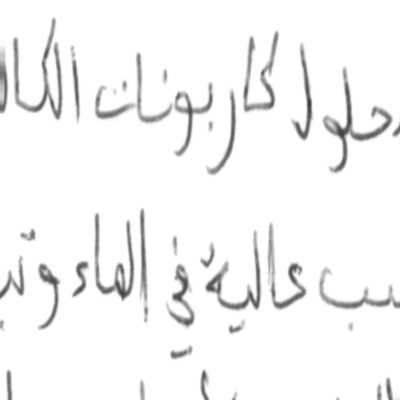 محلول كاربونات الكا
سب عالية في الماء و تب